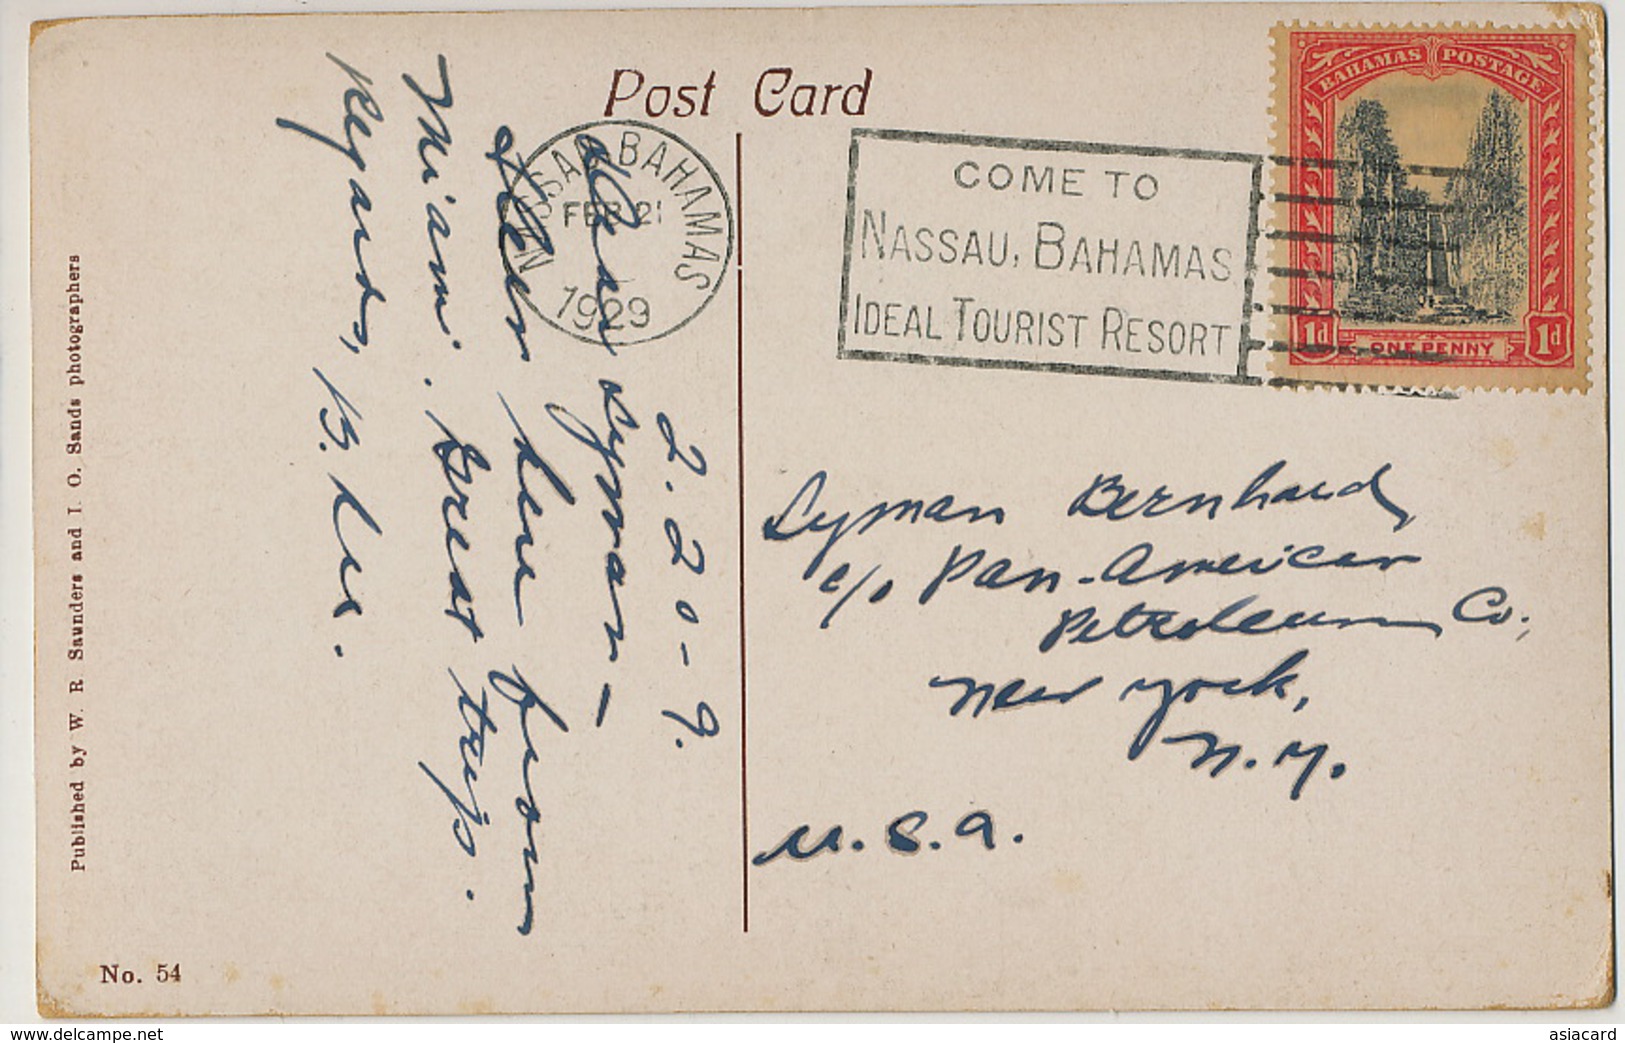 Post Card
NASSAU BAHAMAS
FEB 21
1929
COME TO
NASSAU, BAHAMAS
IDEAL TOURIST RESORT
BAHAMAS POSTAGE
1d ONE PENNY 1d
2.20-9.
Dear Lyman -
here from
Miami. Great trip.
Regards,
Lyman Bernhard
c/o Pan-American
Petroleum Co.,
New York,
N.Y.
U.S.A.
Published by W. R. Saunders and I. O. Sands photographers
No. 54
delcampe.net
asiacard